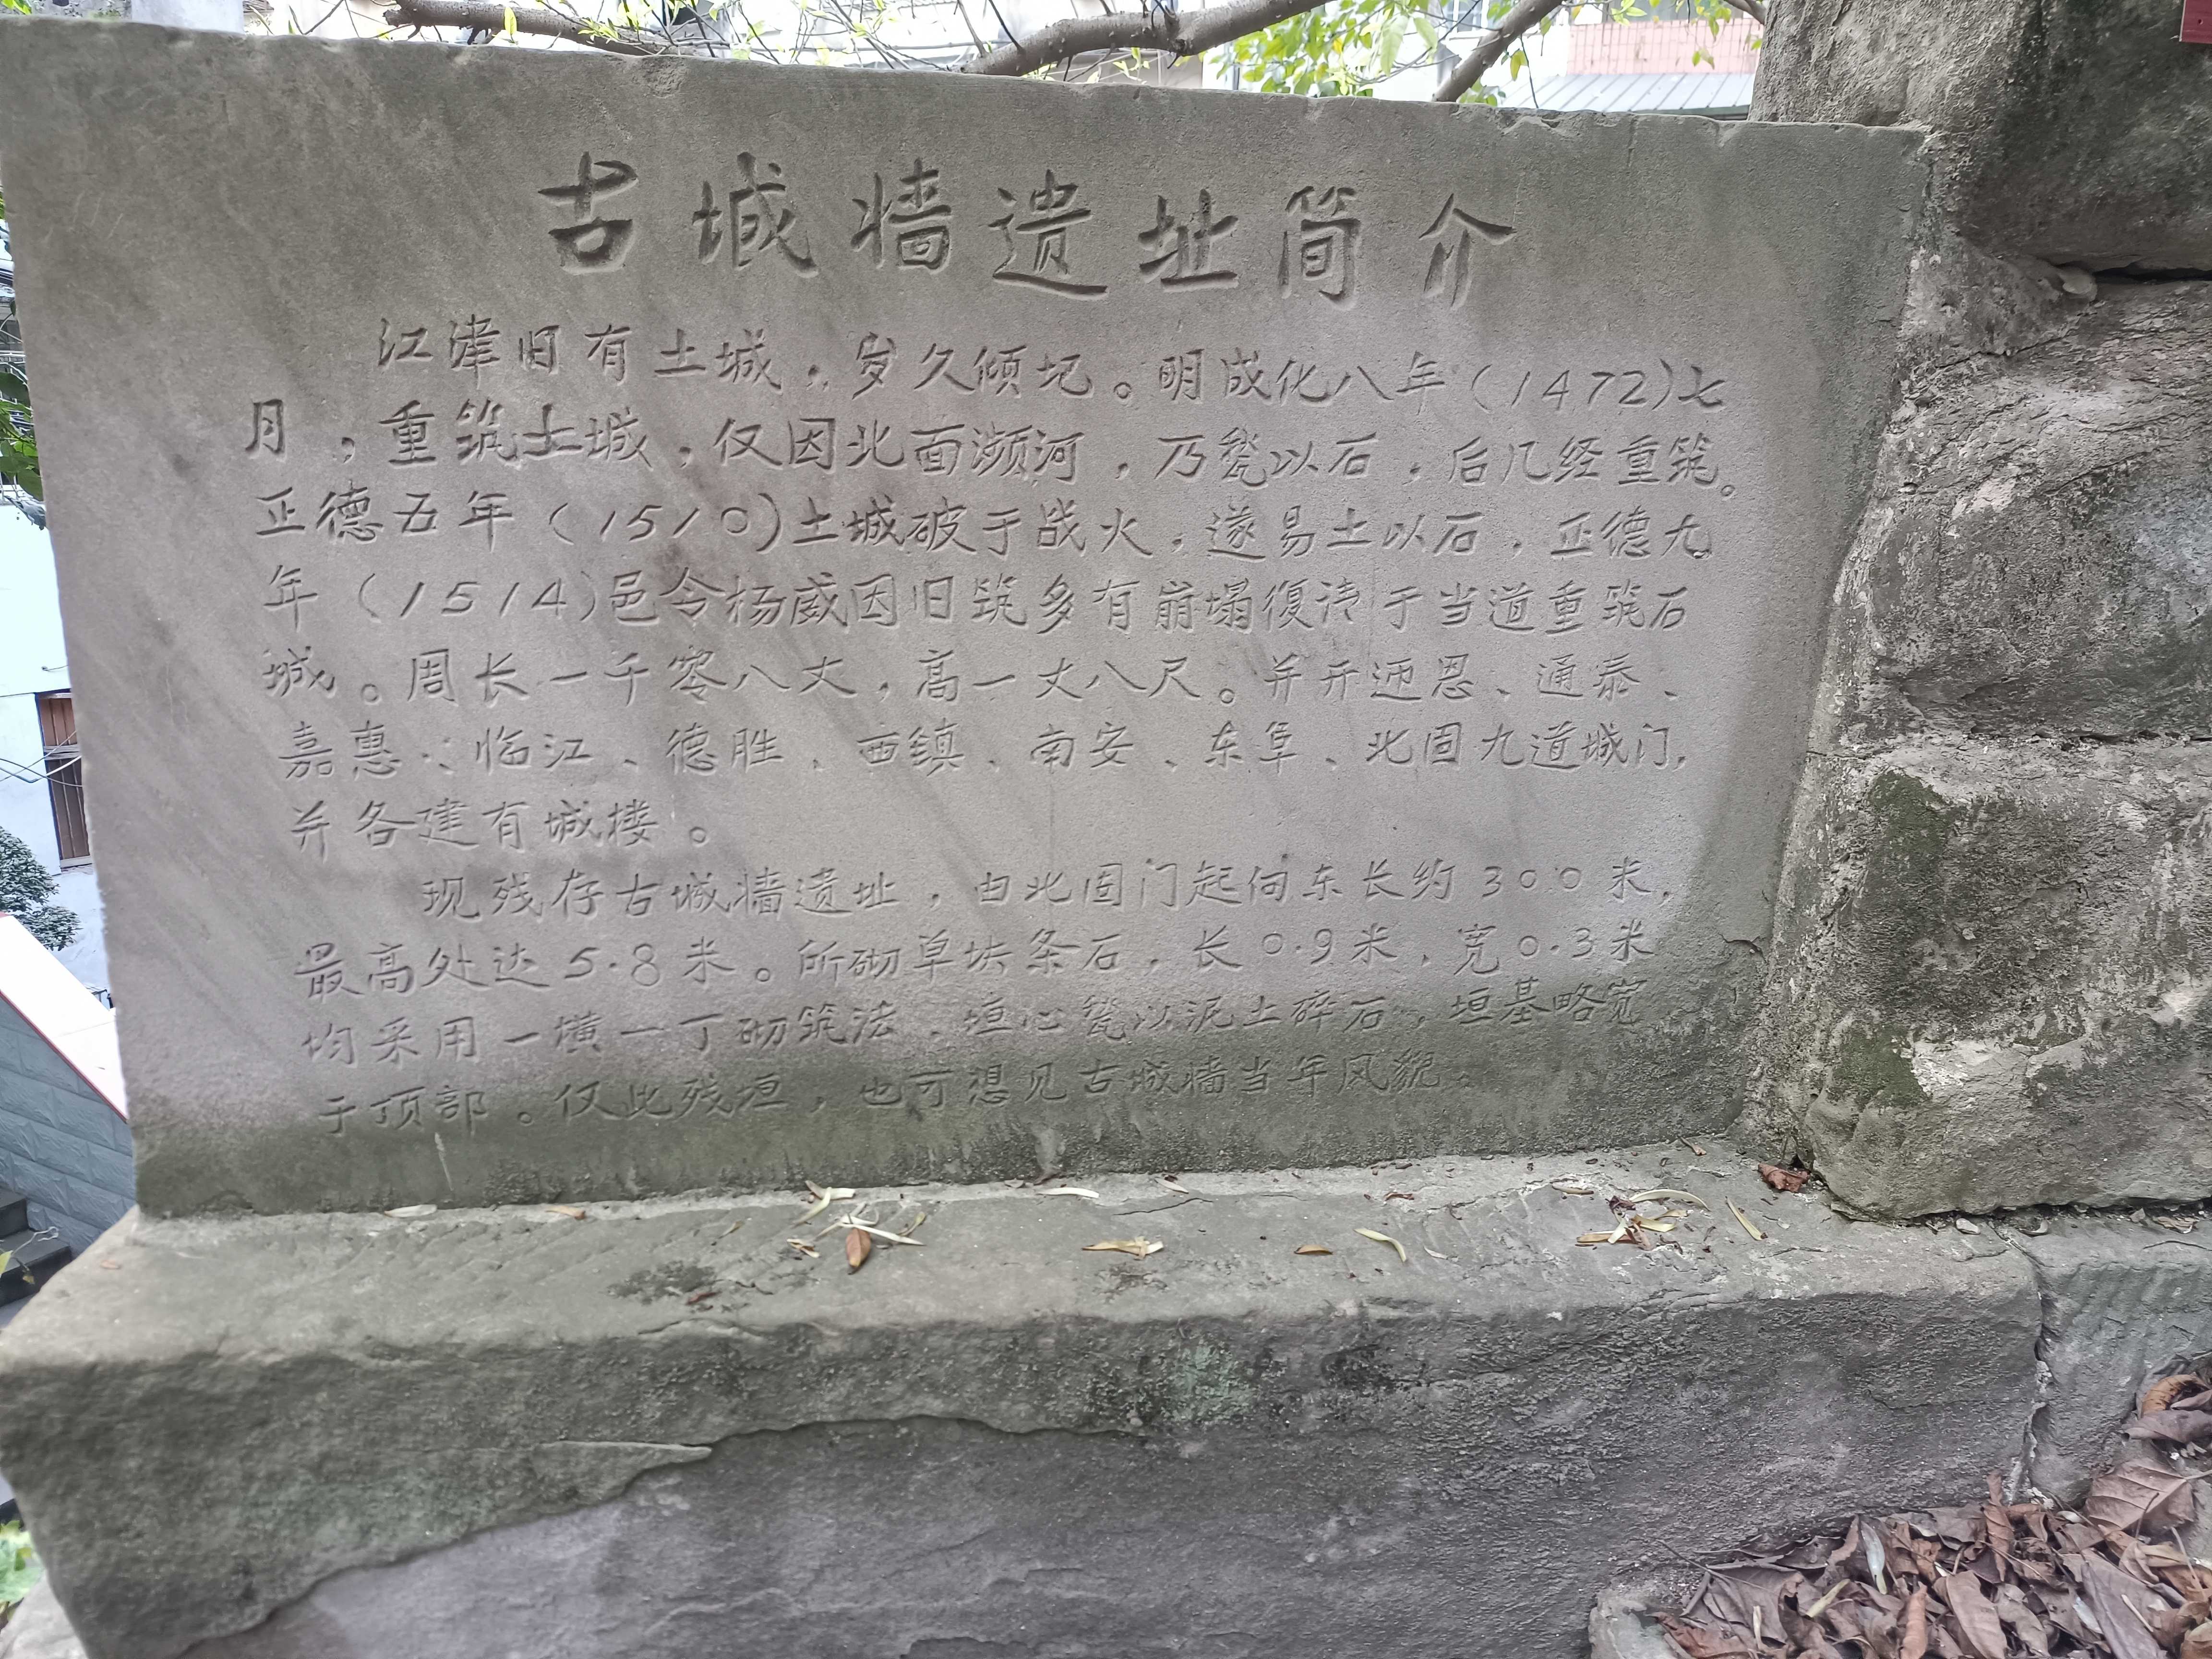 古城墙遗址简介
江津旧有土城，岁久倾圮。明成化八年（1472）七
月，重筑土城，仅因北面濒河，乃甃以石，后几经重筑。
正德五年（1510）土城破于战火，遂易土以石，正德九
年（1514）邑令杨威因旧筑多有崩塌復请于当道重筑石
城。周长一千零八丈，高一丈八尺。并开迎恩、通泰、
嘉惠、临江、德胜、西镇、南安、东阜、北固九道城门，
并各建有城楼。
现残存古城墙遗址，由北固门起向东长约300米，
最高处达5.8米。所砌草块条石，长0.9米，宽0.3米
均采用一横一丁砌筑法，垣心甃以泥土碎石，垣基略宽
于顶部。仅此残垣，也可想见古城墙当年风貌。